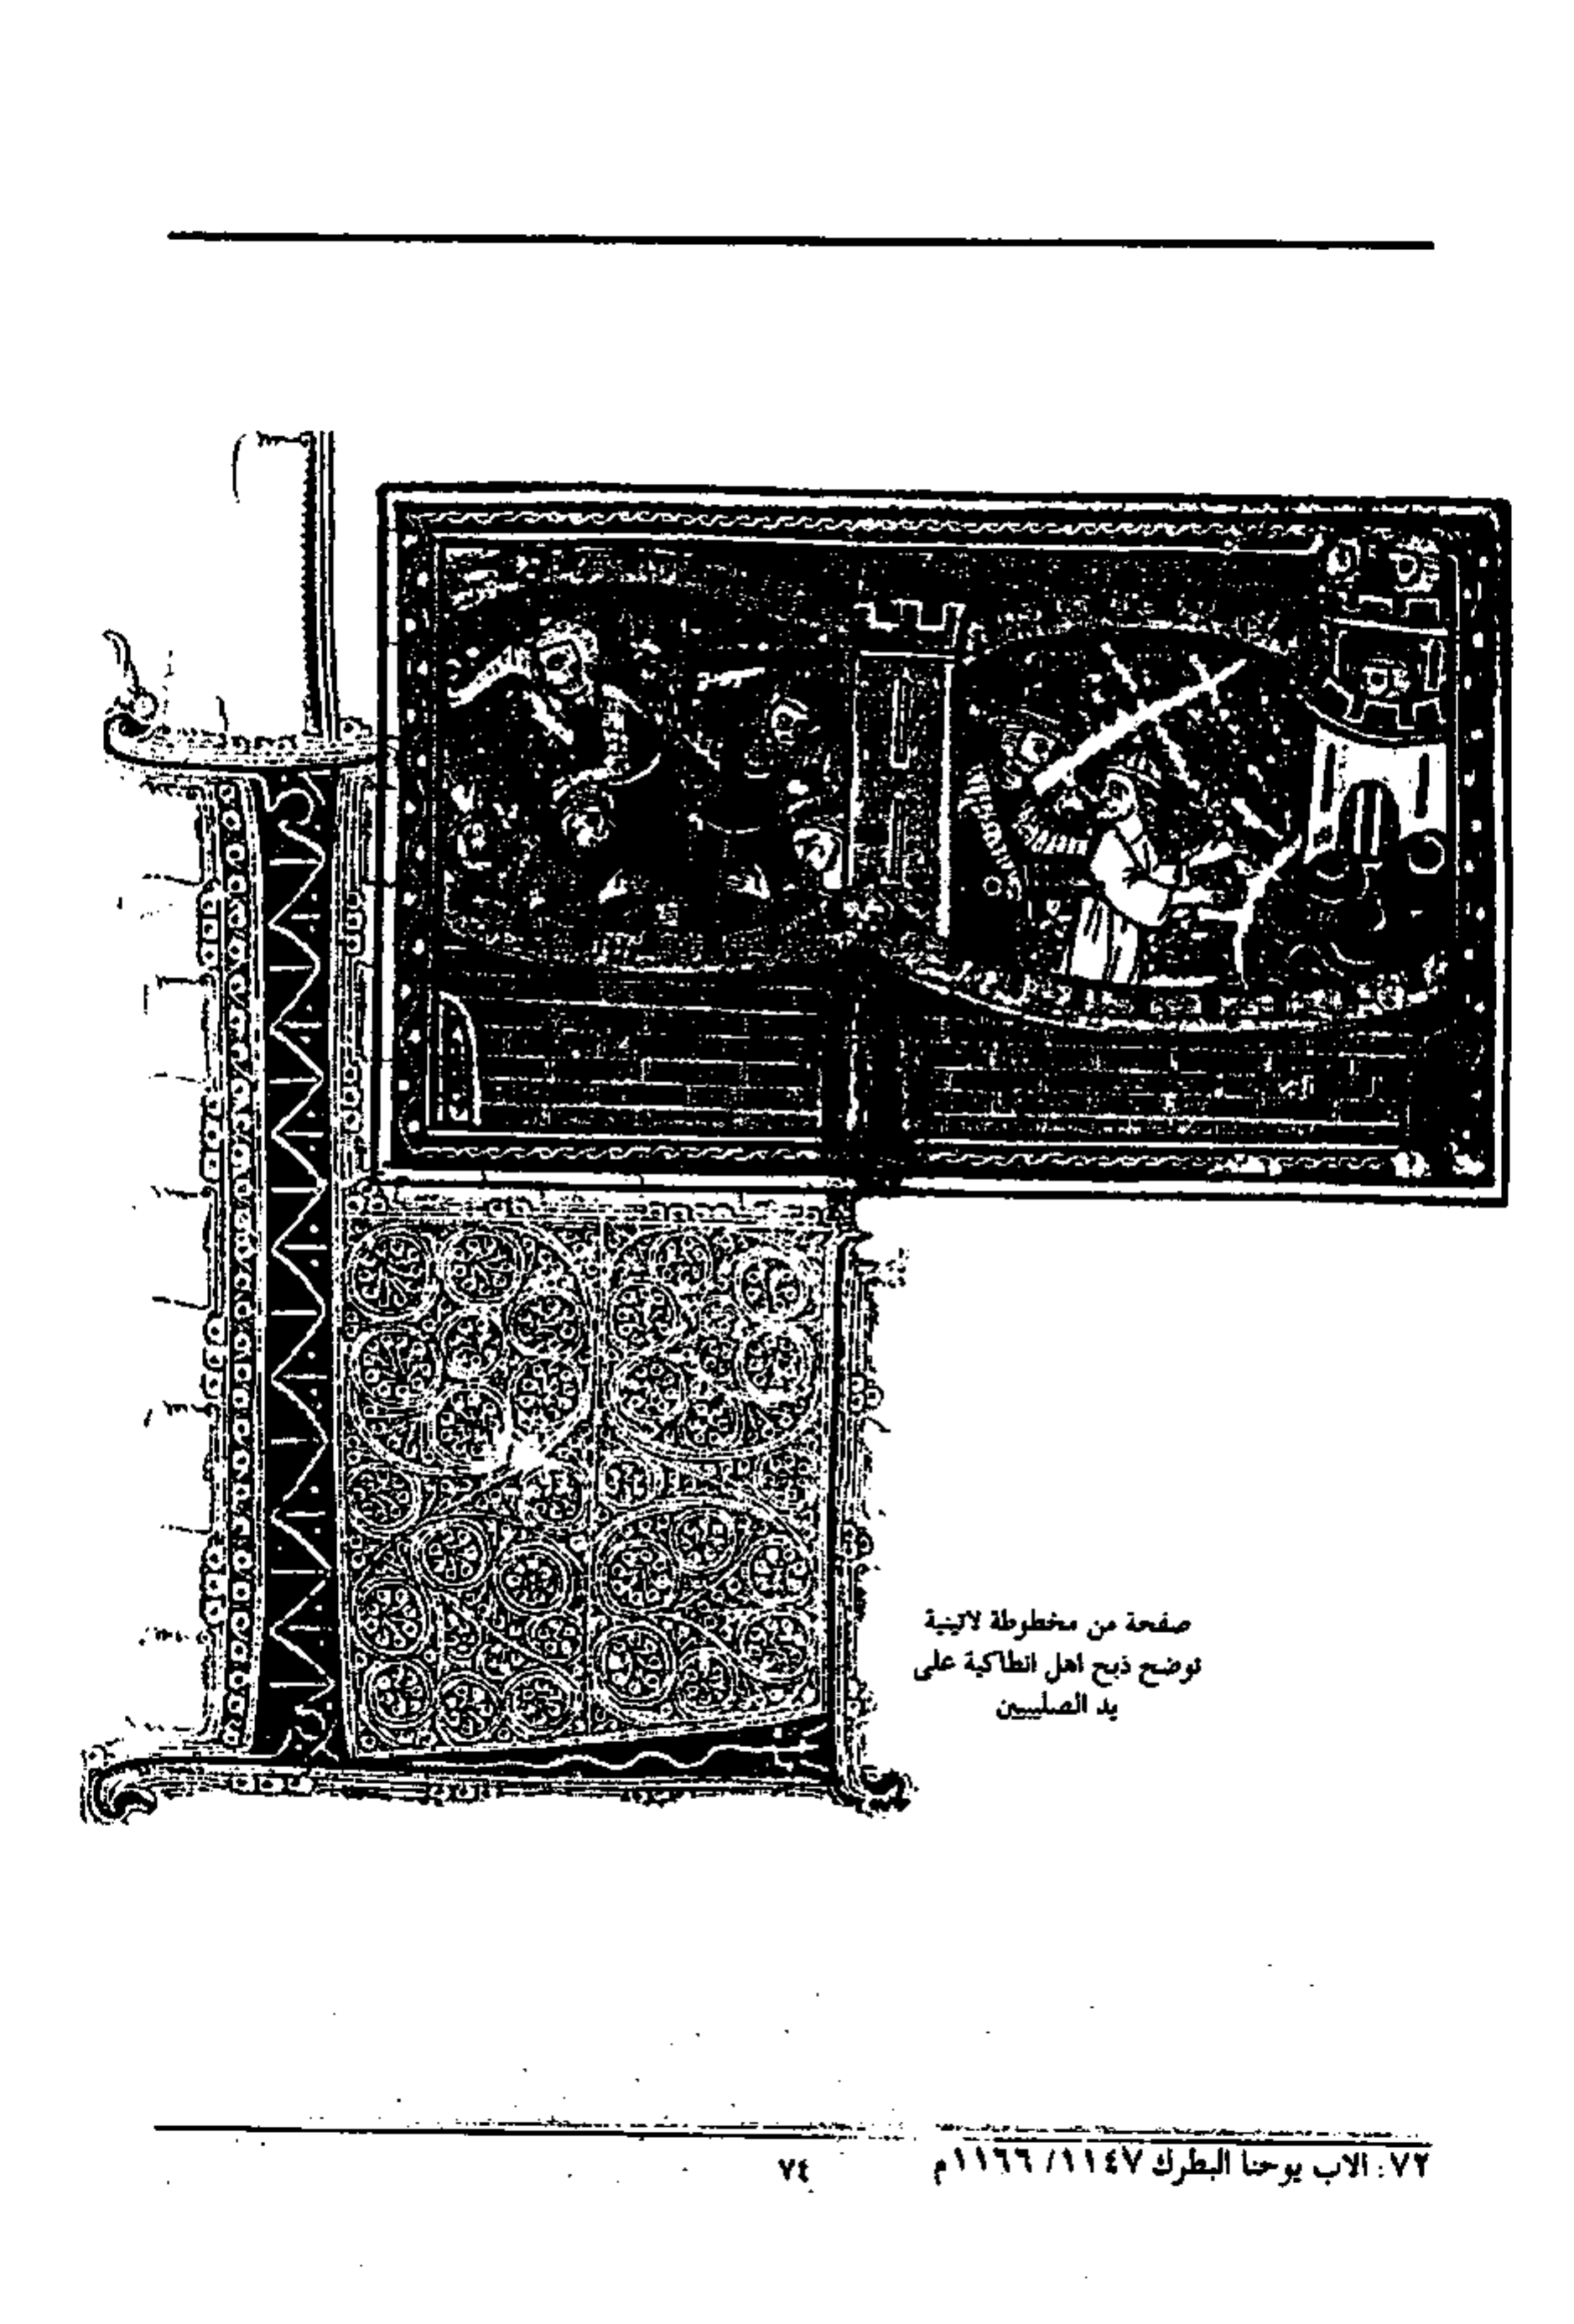 صفحة من مخطوطة لاتينية
توضح ذبح اهل انطاكية على
يد الصليبيين
٧٢: الاب يوحنا البطرك ١١٤٧/ ١١٦٦م
٧٤